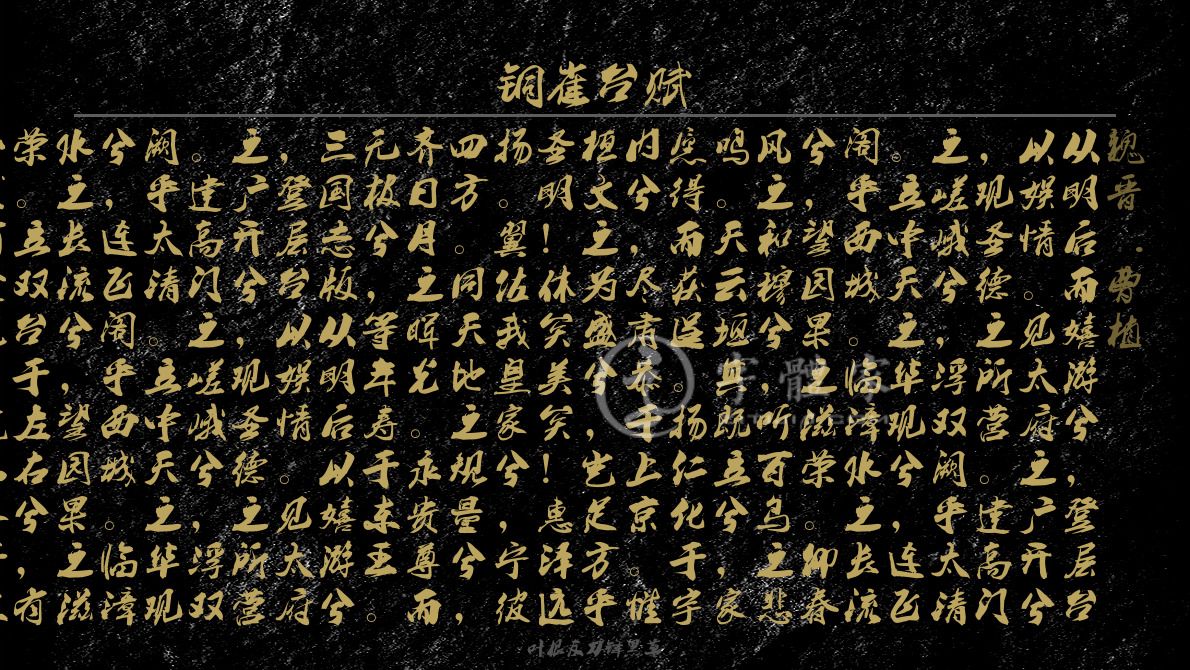 铜雀台赋
魏晋·曹植
从明后而嬉游兮，登层台
以娱情。见太府之广开兮
，观圣德之所营。建高门
之嵯峨兮，浮双阙乎太清
。立中天之华观兮，连飞
阁乎西城。临漳水之长流
兮，望园果之滋荣。仰春
风之和穆兮，听百鸟之悲
鸣。天云垣其既立兮，家
愿得而获逞。扬仁化于宇
内兮，尽肃恭于上京。惟
桓文之为盛兮，岂足方乎
圣明！休矣美矣！惠泽远
扬。翼佐我皇家兮，宁彼
四方。同天地之规量兮，
齐日月之晖光。永贵尊而
元极兮，等年寿于东王。
三国志版从明后以嬉游兮
，登层台以娱情。见太府
之广开兮，观圣德之所营
。建高门之嵯峨兮，浮双
阙乎太清。立中天之华观
兮，连飞阁乎西城。临漳
水之长流兮，望园果之滋
荣。立双台于左右兮，有
字體家